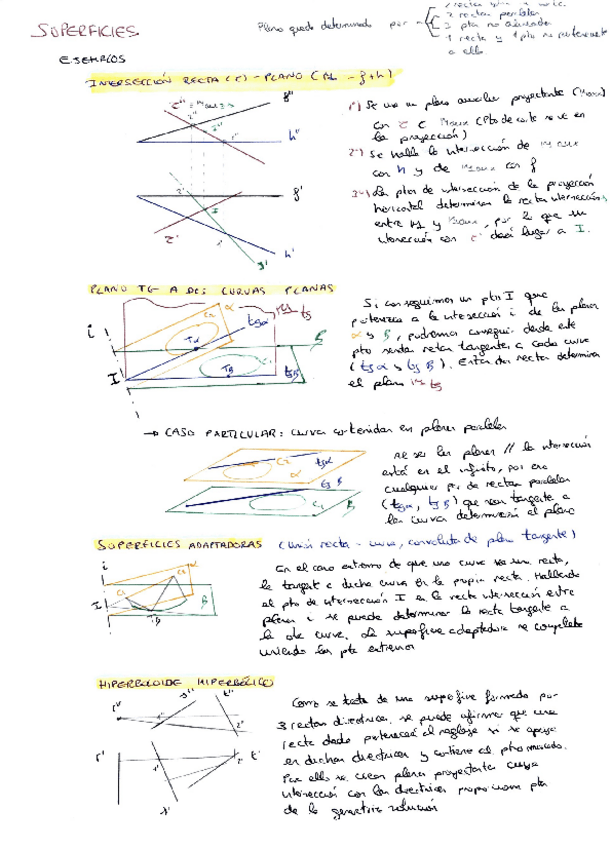 SUPERFICIES
Plano queda determinado por
2 rectas paralelas
3 ptos no alineados
1 recta y 1 pto no perteneciente
a ella
EJEMPLOS
INTERSECCIÓN RECTA (r) - PLANO
1º) Se usa un plano auxiliar proyectante
la proyección)
2º) Se halla la intersección de
con h y de con f
3º) Los ptos de intersección de la proyección
horizontal determinan la recta intersección
entre por lo que su
intersección con r' dará lugar a I.
f''
h''
f'
h'
r'
I
PLANO TG A DOS CURVAS PLANAS
Si conseguimos un pto I que
pertenezca a la intersección i de los planos
α y β, podremos conseguir desde este
pto sendas rectas tangentes a cada curva
(tgα y tgβ). Estas dos rectas determinan
el plano tg
i
I
α
tgα
β
tgβ
→ CASO PARTICULAR: curvas contenidas en planos paralelos
Al ser los planos // la intersección
está en el infinito, por eso
cualquier par de rectas paralelas
(tgα, tgβ) que sean tangentes a
las curvas determinarán el plano
C2
tgα
α
tgβ
C1
β
SUPERFICIES ADAPTADORAS (Unión recta - curva, convoluta de plano tangente)
En el caso extremo de que una curva sea una recta,
la tangente a dicha curva es la propia recta. Hallando
el pto de intersección I en la recta intersección entre
planos i se puede determinar la recta tangente a
la otra curva. La superficie adaptadora se completa
uniendo los ptos extremos
i
I
β
HIPERBOLOIDE HIPERBÓLICO
Como se trata de una superficie formada por
3 rectas directrices, se puede afirmar que una
recta dada pertenecerá al reglaje si se apoya
en dichas directrices y contiene al pto marcado.
Por ello se crean planos proyectantes cuya
intersección con las directrices proporciona ptos
de la generatriz solución
r''
s''
t''
r'
t'
s'